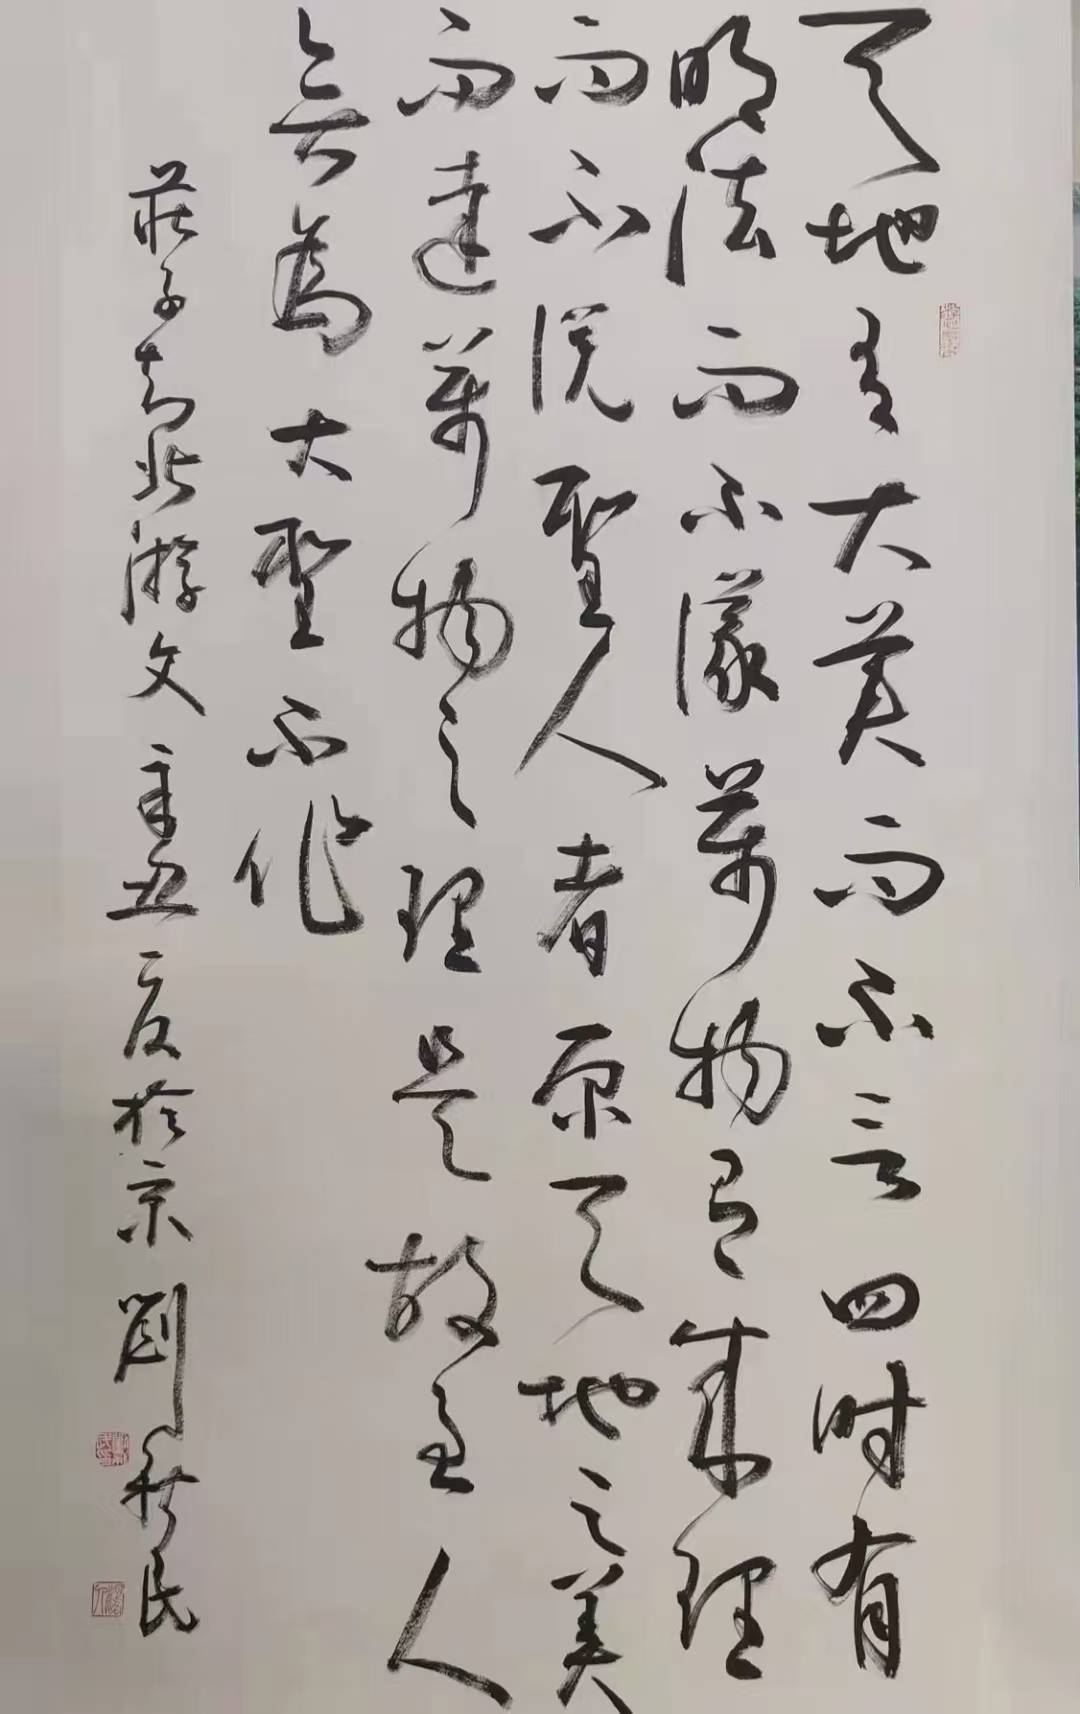 天地有大美而不言四时有
明法而不议万物有成理
而不说圣人者原天地之美
而达万物之理是故至人
无为大圣不作
莊子知北游文 辛丑夏於京 劉秋民